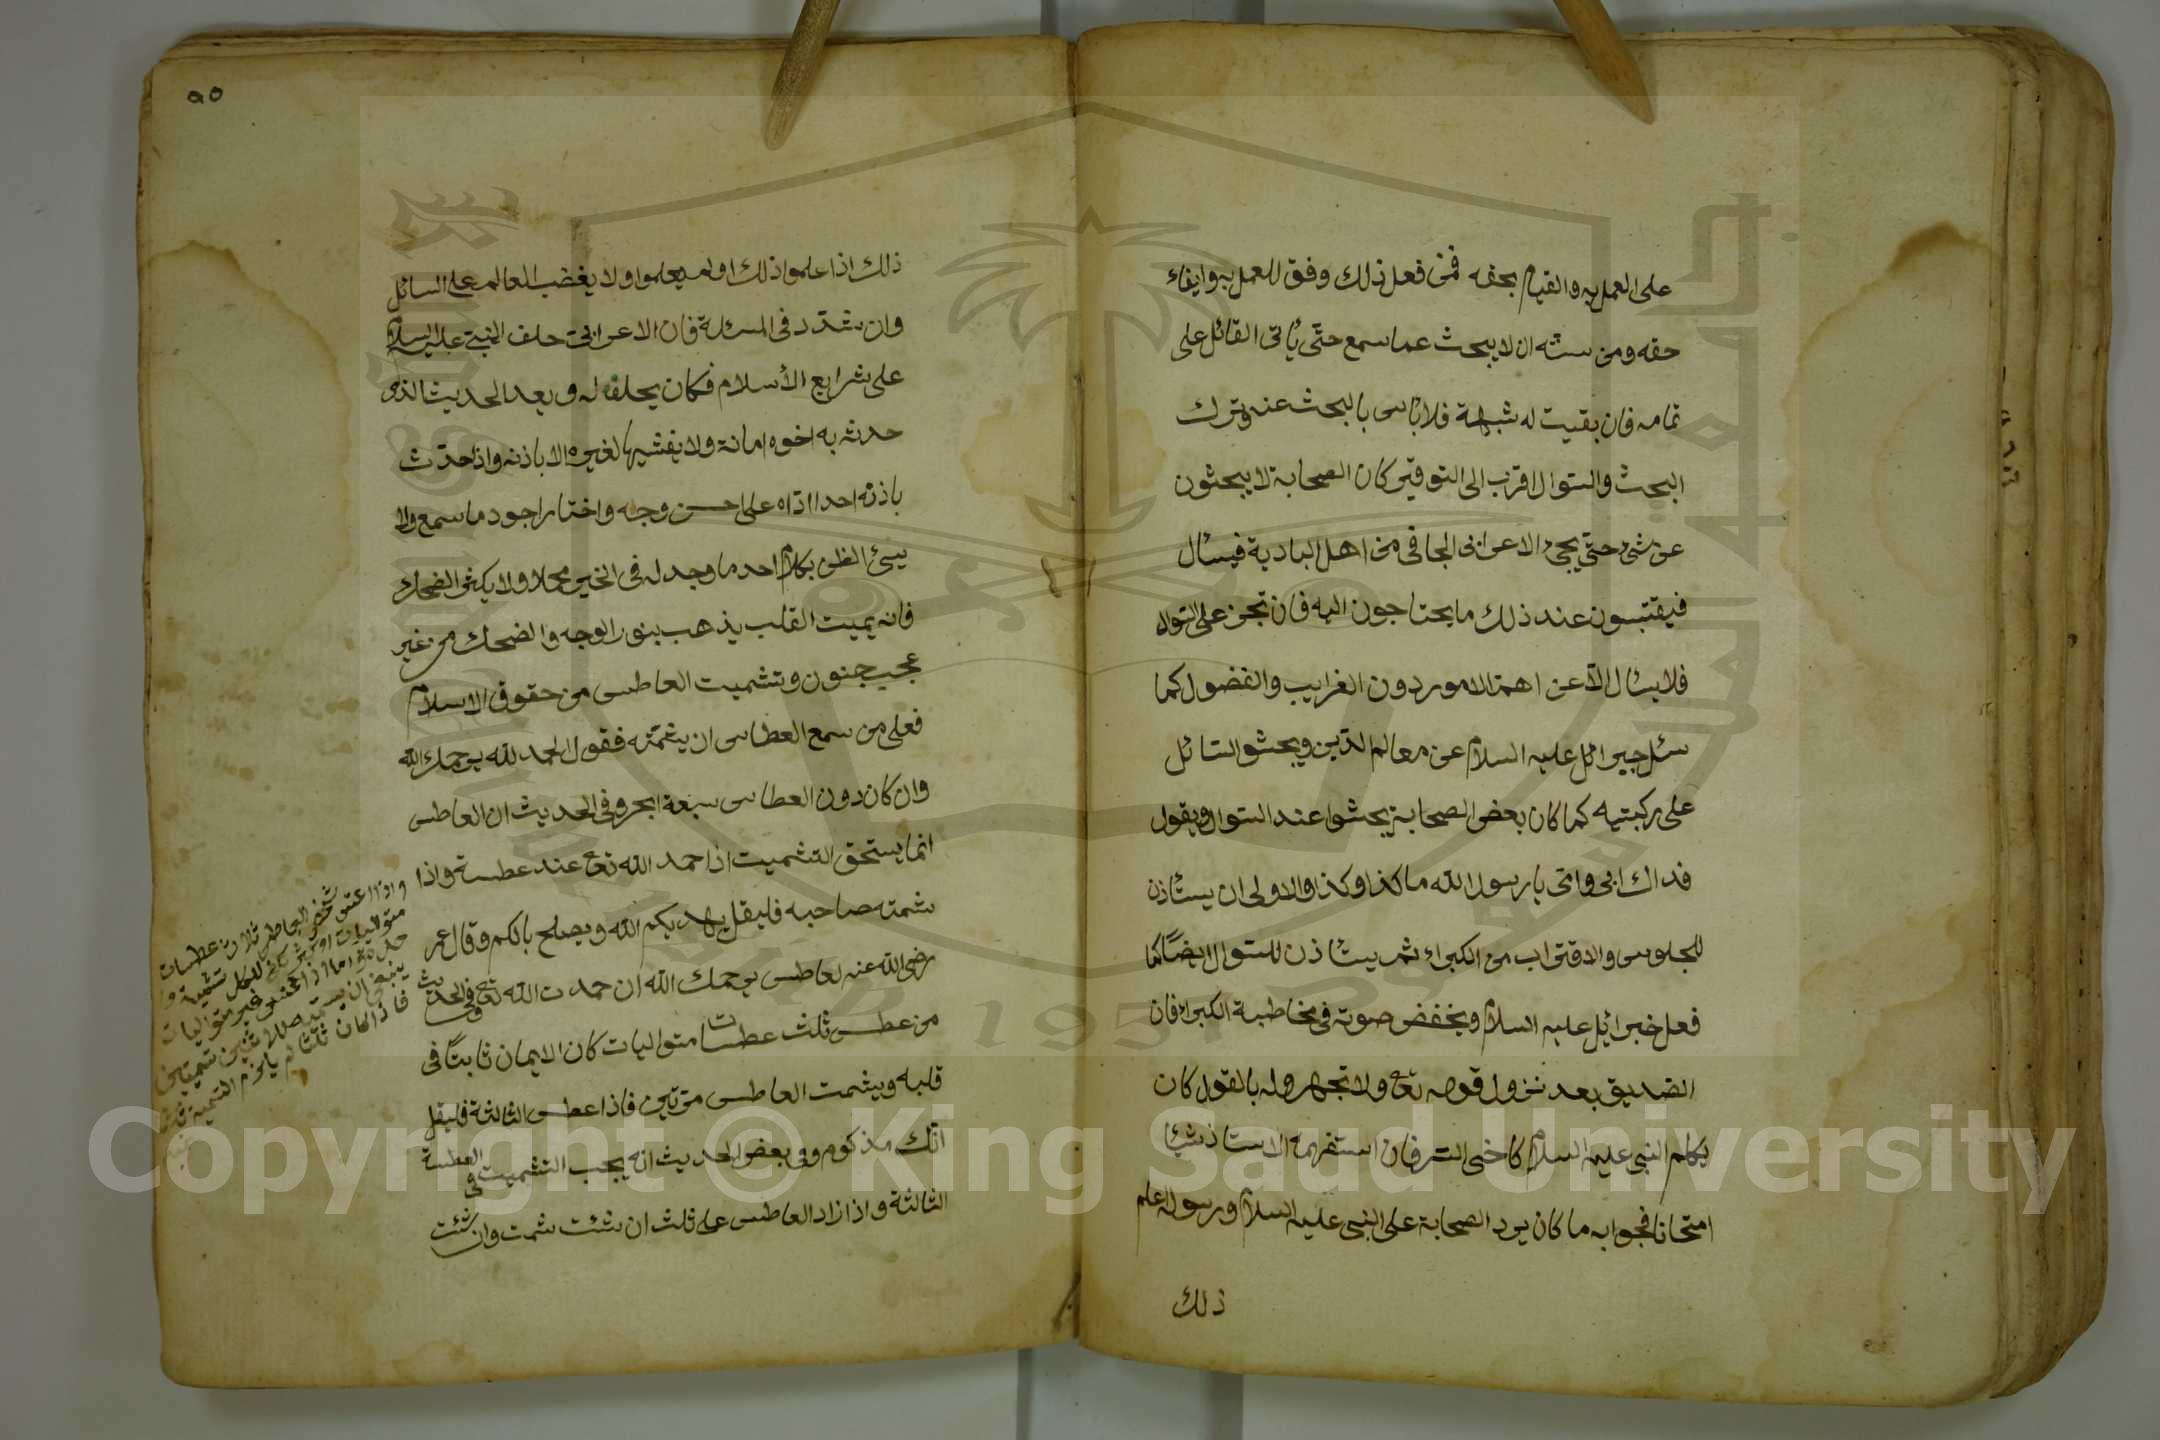 على العمل به والقيام بحقه فمن فعل ذلك وفق للعمل به وايفاء
حقه ومن سنته ان لا يبحث عما سمع حتى يأتى القائل على
تمامه فان بقيت له شبهة فلا باس بالبحث عنه وترك
البحث والسؤال اقرب الى التوقير كان الصحابة لا يبحثون
عن شئ حتى يجئ الاعرابى الجافى من اهل البادية فيسأل
فيقتبسون عند ذلك ما يحتاجون اليه فان تجرى على السؤال
فلا يسأل الا عن اهم الامور دون الغرايب والفضول كما
سئل جبرائل عليه السلام عن معالم الدين ويجثو السائل
على ركبتيه كما كان بعض الصحابة يجثوا عند السؤال ويقول
فداك ابى وامى يا رسول الله ما كذا وكذا والاولى ان يستأذن
للجلوس والاقتراب من الكبراء ثم يستأذن للسؤال ايضًا كما
فعل جبرائيل عليه السلام ويخفض صوته فى مخاطبة الكبراء فان
الصديق بعد نزول قوله تع ولا تجهروا له بالقول كان
يكلم النبى عليه السلام كاخى السر فان استفهمه الاستاذ شيئا
امتحانا فجوابه ما كان يرد الصحابة على النبى عليه السلام ورسوله اعلم
ذلك
٩٥
ذلك اذا علموا ذلك او لم يعلموا ولا يغضب العالم على السائل
وان شدد فى المسئلة فان الاعرابى حلف النبى عليه السلام
على شرايع الأسلام فكان يحلف له ويعد الحديث الذى
حدثه به اخوه امانة ولا يفشيها لغيره الا باذنه واذا حدث
باذنه احدا اداه على احسن وجه واختار اجود ما سمع ولا
يسئ الظن بكلام احد ما وجد له فى الخير محملا ولا يكثر الضحك
فانه يميت القلب يذهب بنور الوجه والضحك من غير
عجب جنون وتشميت العاطس من حقوق الاسلام
فعلى من سمع العطاس ان يشمته فقول الحمد لله يرحمك الله
وان كان دون العطاس سبعة ابحر وفى الحديث ان العاطس
انما يستحق التشميت اذا حمد الله تع عند عطسة واذا
شمته صاحبه فليقل يهديكم الله ويصلح بالكم وقال عمر
رضى الله عنه لعاطس يرحمك الله ان حمدت الله تع وفى الحديث
من عطس ثلث عطسات متواليات كان الايمان ثابتًا فى
قلبه ويشمت العاطس مرتين فاذا عطس الثالثة فليقل
انك مذكوم وفى بعض الحديث انه يجب التشميت فى العطسة
الثالثة واذا زاد العاطس على ثلث ان شئت شمت وان شئت
ثلاث عطسات
متواليات
غير متواليات